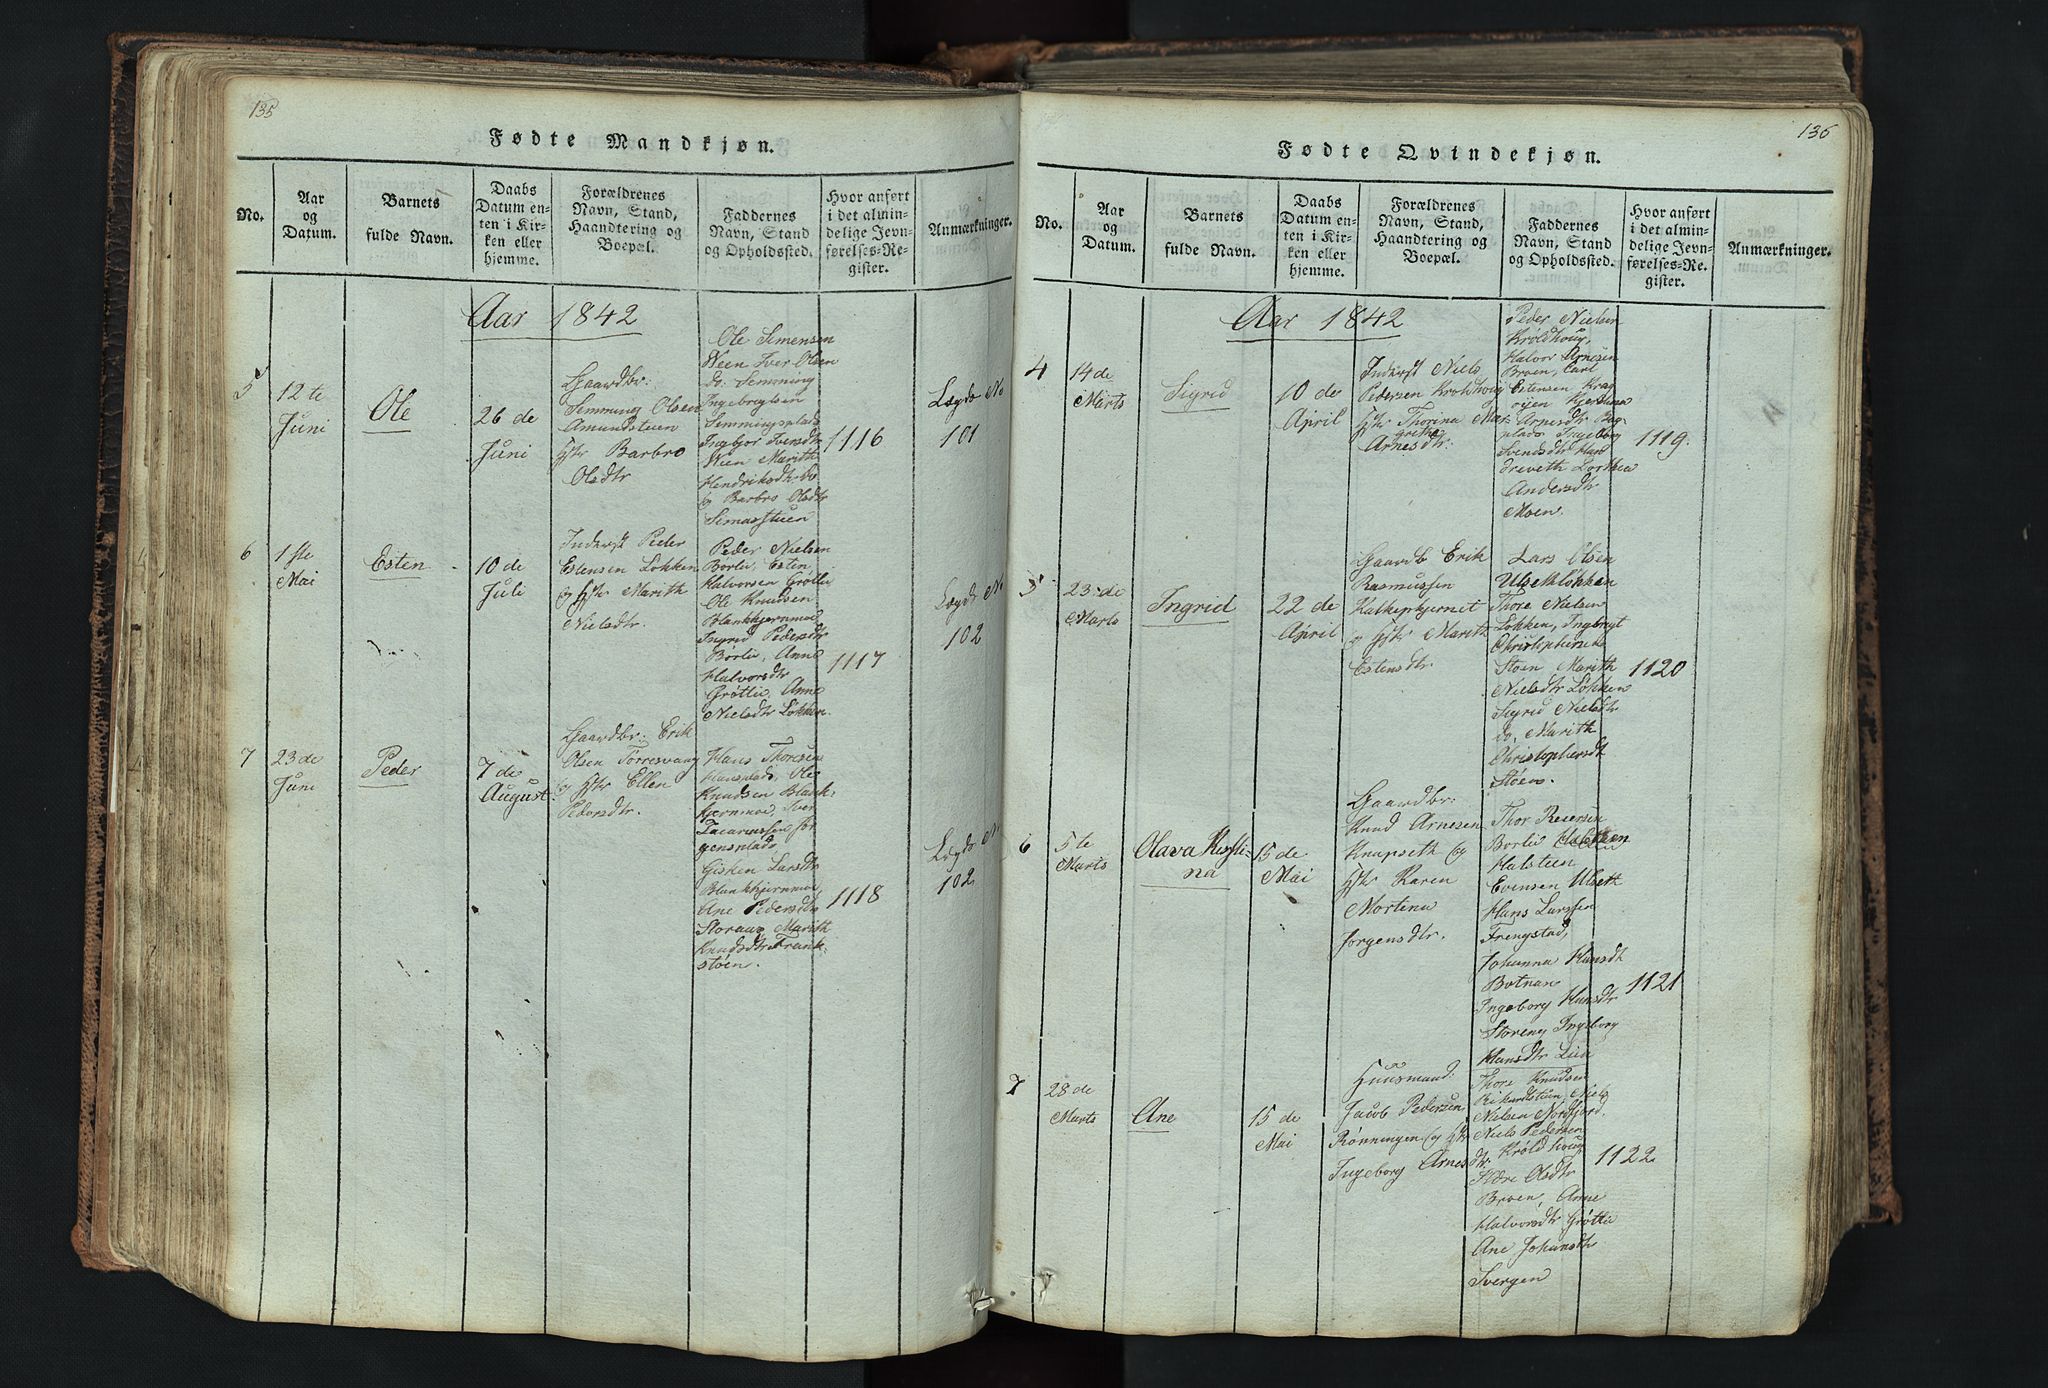 135
Fødte Mandkjøn.
No.
Aar
og
Datum.
Barnets
fulde Navn.
Daabs
Datum en-
ten i Kir-
ken eller
hjemme.
Forældrenes
Navn, Stand,
Haandtering og
Boepæl.
Faddernes
Navn, Stand
og Opholdssted.
Hvor anført
i det almin-
delige Jevn-
førelses-Re-
gister.
Anmærkninger.
Aar 1842
5
12te
Juni
Ole
26de
Juni
Gaardbr:
Semming Olsen
Amundstuen
Hstr Barbro
Olsdtr
Ole Simensen
Ween Iver Olsen
do. Semming
Ingebrigtsen
Semmingsplads
Ingebor Iversdtr
Wien Marith
Hendriksdtr do
og Barbro Olsdtr
Simastuen
1116
Lægds No
101
6
1ste
Mai
Esten
10de
Juli
Inderst Peder
Estensen Løkken
og Hstr Marith
Nielsdtr.
Peder Nielsen
Borlie, Esten
Halvorsen Grøtlie
Ole Knudsen
Blankkjernmoe
Ingrid Pedersdtr
Børlie, Anne
Halvorsdtr
Grøtlie, Anne
Nielsdtr Løkken
1117
Lægds No
102
7
23de
Juni
Peder
7de
August
Gaardbr: Erik
Olsen Torresvang
og Hstr Ellen
Pedersdtr.
Hans Thoresen
Hansplads, Ole
Knudsen Blank-
kjernmoe Iver
Zacariassen Jør
gensplads
Gisken Larsdtr
Blankkjernmoe
Ane Pedersdtr
Storaas Marith
Knudsdtr Frank-
støen.
1118
Lægds N
102
136
Fødte Qvindekjøn.
No.
Aar
og
Datum.
Barnets
fulde Navn.
Daabs
Datum en-
ten i Kir-
ken eller
hjemme.
Forældrenes
Navn, Stand,
Haandtering og
Boepæl.
Faddernes
Navn, Stand
og Opholdssted.
Hvor anført
i det almin-
delige Jevn-
førelses-Re-
gister.
Anmærkninger.
Aar 1842
4
14de
Marts
Sigrid
10de
April
Inderst Niels
Pedersen Kroldhoug
Hstr Thorina Mar
grethe
Arnesdtr.
Peder Nielsen
Króldhoug,
Halvor Arnesen
Broen, Carl
Estensen Krag
oijen Kjerstina
Arnesdtr
plads Ingeborg
Svendsdtr
Andersdtr
Moen.
1119.
5
23de
Marts
Ingrid
22de
April
Gaardb Erik
Rasmussen
Kalkepkjernet
og Hstr Marith
Estensdtr.
Lars Olsen
Ulsetløkken
Thore Nielsen
Løkken, Ingbrigt
Christophersen
Stoen Marith
Nielsdtr Løkken
Sigrid Nielsdtr
do, Marith
Christophersdt
Støen.
1120
6
5te
Marts
Olava Kersti-
na
15de
Mai
Gaardbr:
Knud Arnesen
Knapseth og
Hstr Karen
Mortena
Jorgensdtr.
Thor Reiersen
Borlie
Halsteen
Evensen Ulseth
Hans Larssen
Frengstad,
Johanna Hansdt
Botnan
Ingeborg Hansdtr
Storeng Ingeborg
Hansdtr Lien
1121
7
28de
Marts
Ane
15de
Mai
Huusmand
Jacob Pedersen
Rönningen og Hstr
Ingeborg Arnesdtr.
Thore Knudsen
Rikardstuen, Niels
Nielsen Nordfjord.
Niels Pedersen
Króldhoug
Olsdtr
Broen, Anne
Halvorsdtr Grøtlie
Ane Johansdtr
Svergen
1122